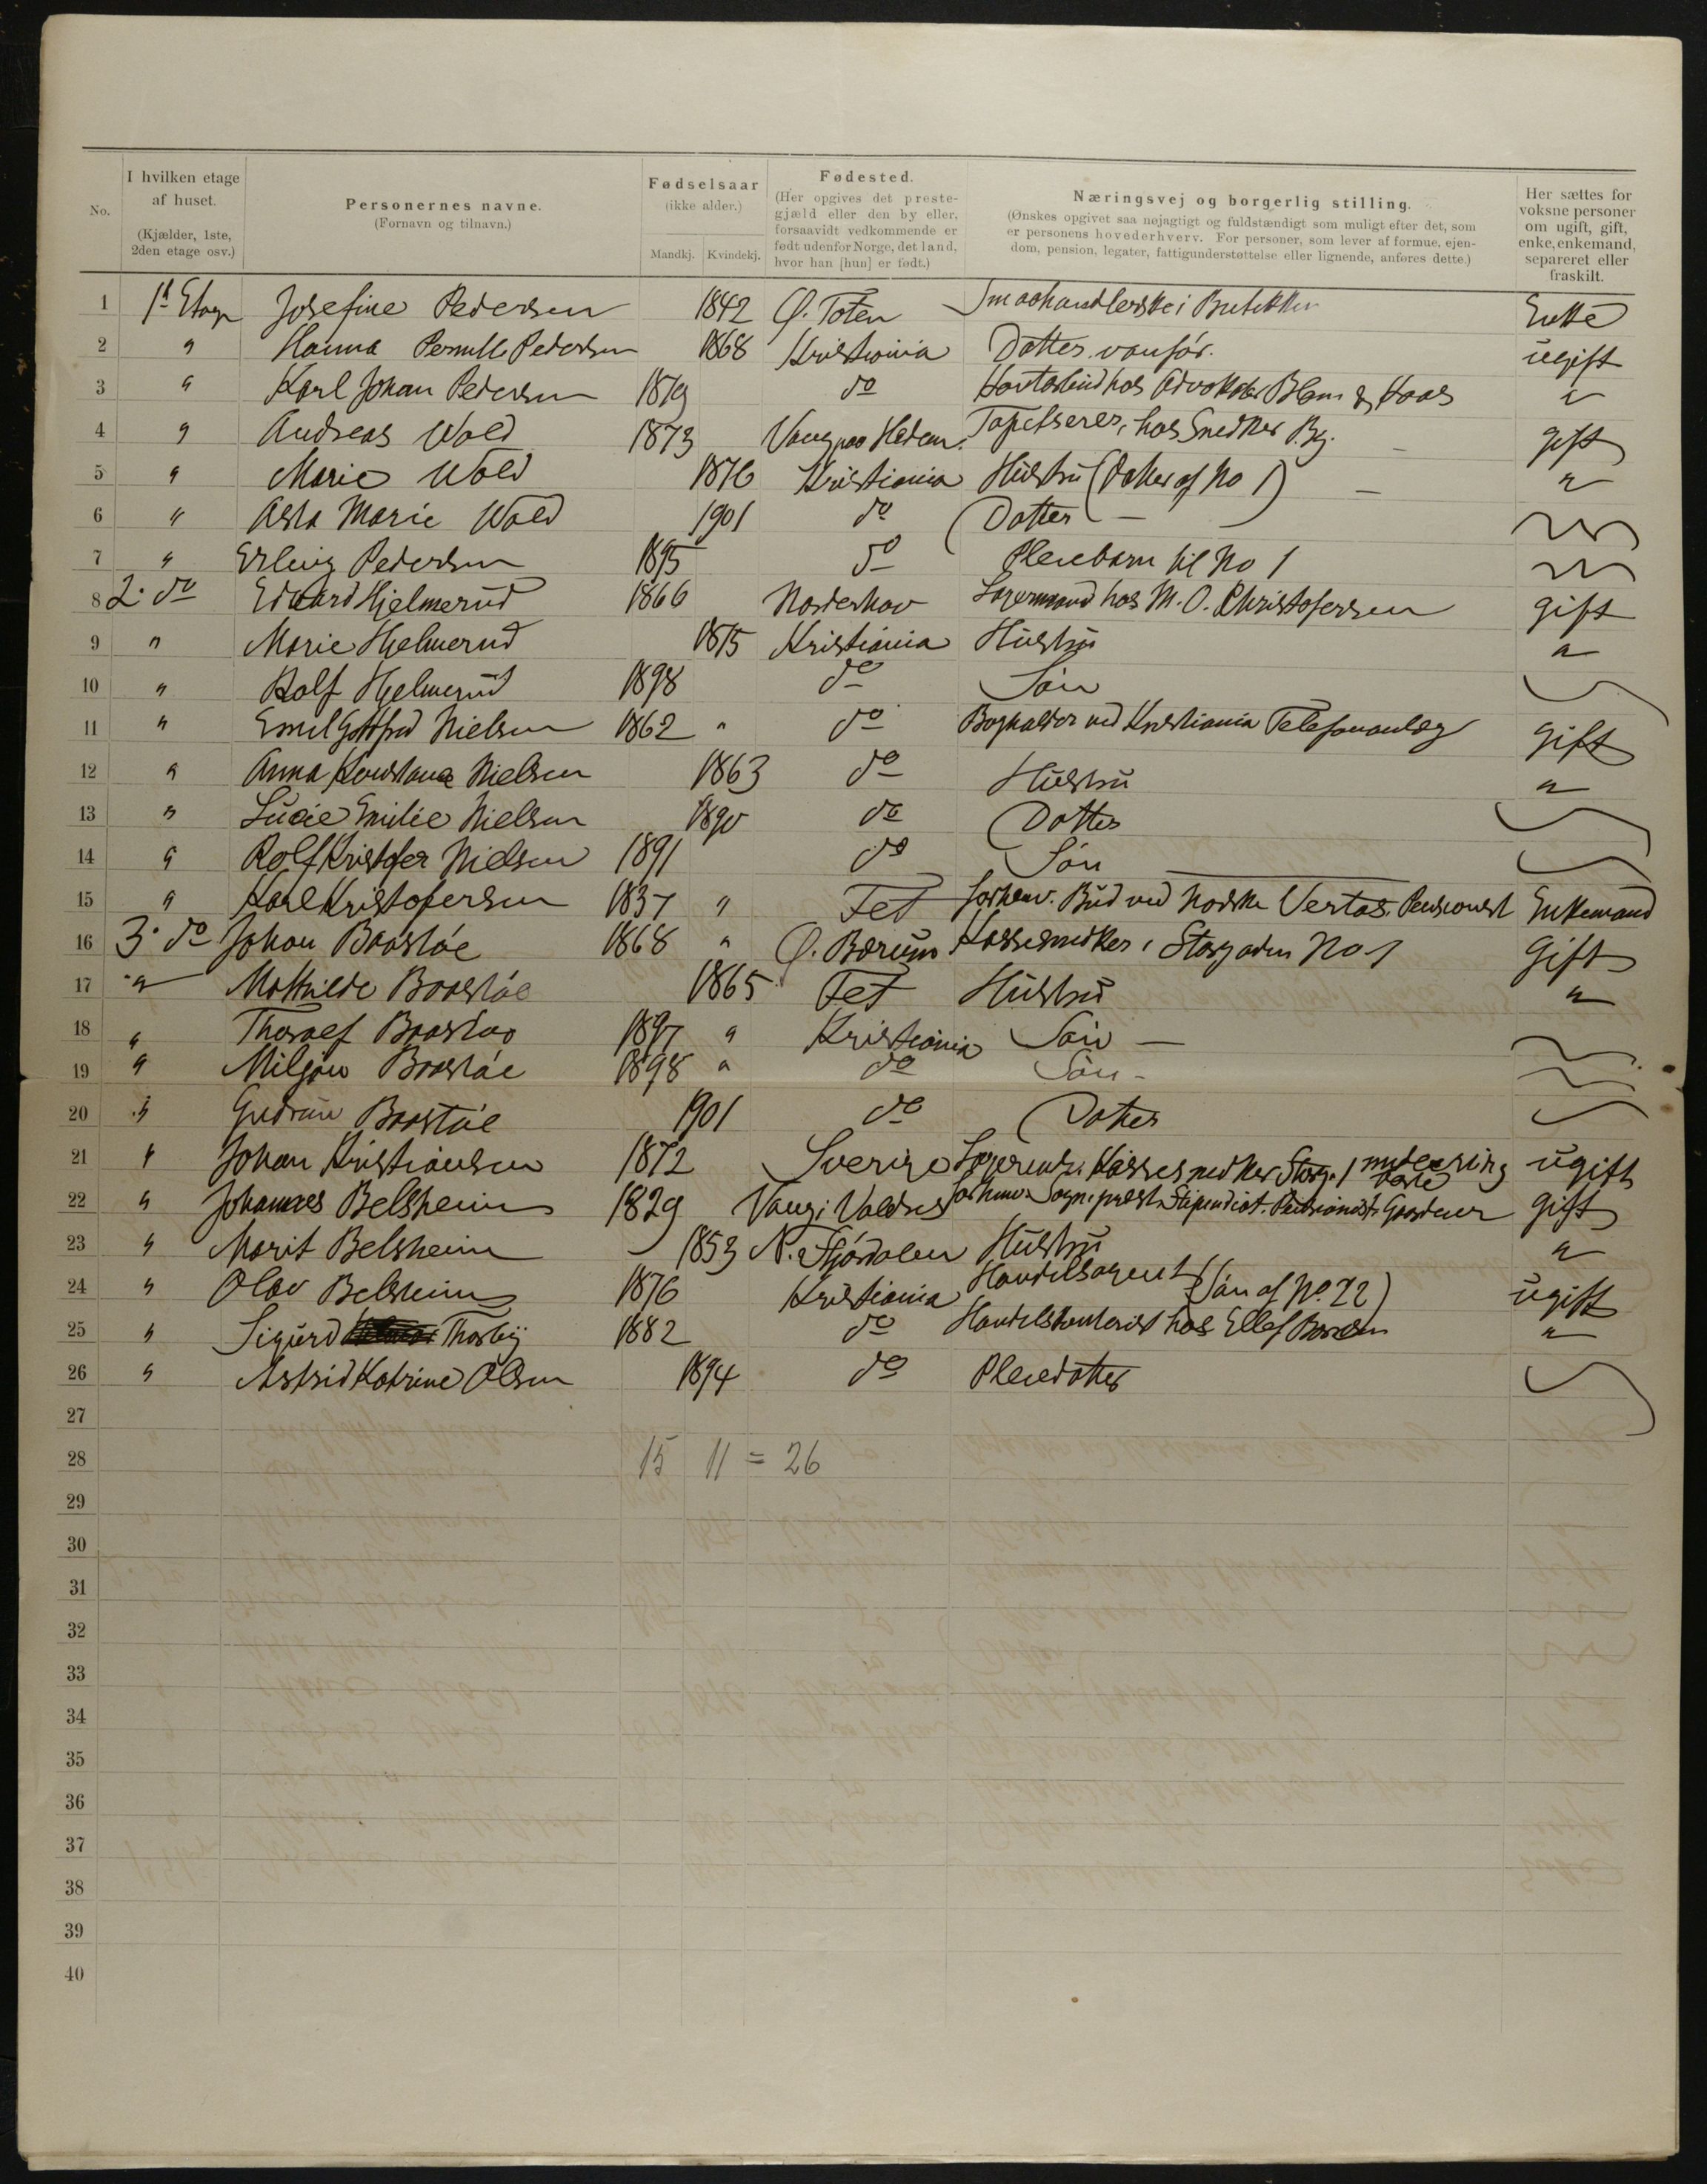 No.
I hvilken etage af huset. (Kjælder, 1ste, 2den etage osv.)
Personernes navne. (Fornavn og tilnavn.)
Fødselsaar (ikke alder.) Mandkj. Kvindekj.
Fødested. (Her opgives det prestegjæld eller den by eller, forsaavidt vedkommende er født udenfor Norge, det land, hvor han [hun] er født.)
Næringsvej og borgerlig stilling. (Ønskes opgivet saa nøjagtigt og fuldstændigt som muligt efter det, som er personens hovederhverv. For personer, som lever af formue, ejendom, pension, legater, fattigunderstøttelse eller lignende, anføres dette.)
Her sættes for voksne personer om ugift, gift, enke, enkemand, separeret eller fraskilt.
1 1ste Etage Josefine Pedersen 1842 Ø. Toten Smaahandlerske i Butikker Enke
2 " Hanna Pernille Pedersen 1868 Kristiania Datter vanfør. ugift
3 " Karl Johan Pedersen 1879 do hos Advokater Blom & Haas "
4 " Andreas Wold 1873 Vang paa Hedem. Tapetserer, hos Snedker gift
5 " Marie Wold 1876 Kristiania Hustru (Datter af No 1) — "
6 " Asta Marie Wold 1901 do Datter —
7 " Erling Pedersen 1895 do Pleiebarn til No 1
8 2. do Edvard Hjelmerud 1866 Norderhov Lagermand hos M. O. Christofersen gift
9 " Marie Hjelmerud 1875 Kristiania Hustru "
10 " Rolf Hjelmerud 1898 do Søn
11 " Emil Gottfred Nielsen 1862 " do Bogholder ved Kristiania Telefonanlæg gift
12 " Anna Konstance Nielsen 1863 do Hustru "
13 " Lucie Emilie Nielsen 1890 do Datter
14 " Rolf Kristofer Nielsen 1891 do Søn
15 " Karl Kristofersen 1837 " Fet forhenv. Bud ved Norske Veritas, Pensionist Enkemand
16 3. do Johan Baastøe 1868 " Ø. Bærum Kassesnedker i Storgaden No 1 gift
17 " Mathilde Baastøe 1865 Fet Hustru "
18 " Thoralf Baastøe 1897 " Kristiania Søn —
19 " Miljøw Baastøe 1898 " do Søn -
20 " Gudrun Baastøe 1901 do Datter
21 " Johan Kristiansen 1872 Sverige Kassesnedker Storg. 1 ugift
22 " Johannes Belsheim 1829 Vang i Valdres forhenv. Sogneprest Stipendiat. Pensionist. Gaardeier gift
23 " Marit Belsheim 1853 N. Stjørdalen Hustru "
24 " Olav Belsheim 1876 Kristiania Handelsagent (Søn af No. 22) ugift
25 " Sigurd Thorby 1882 do Handelskontorist hos Ellef "
26 " Astrid Katrine Olsen 1894 do Pleiedatter
27
28 15 11 = 26
29
30
31
32
33
34
35
36
37
38
39
40